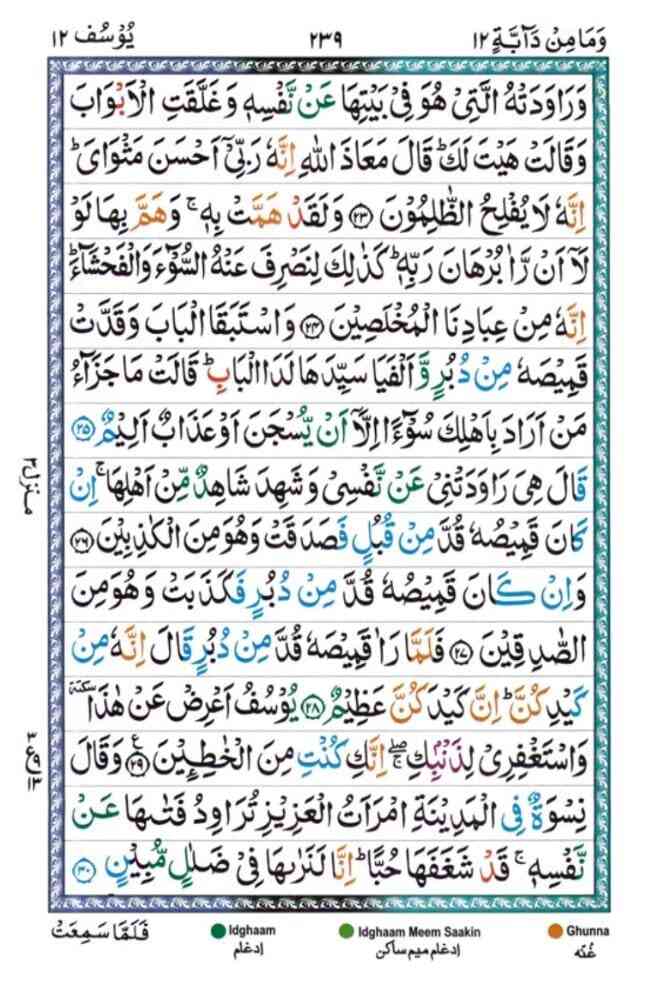 وَمَا مِنْ دَآبَّةٍ ١٢ ٢٣٩ يُوْسُف ١٢
وَرَاوَدَتْهُ الَّتِیْ هُوَ فِیْ بَیْتِهَا عَنْ نَّفْسِهٖ وَغَلَّقَتِ الْاَبْوَابَ
وَقَالَتْ هَیْتَ لَكَ ؕ قَالَ مَعَاذَ اللّٰهِ اِنَّهٗ رَبِّیْۤ اَحْسَنَ مَثْوَایَ ؕ
اِنَّهٗ لَا یُفْلِحُ الظّٰلِمُوْنَ ﴿۲۳﴾ وَلَقَدْ هَمَّتْ بِهٖ ۚ وَهَمَّ بِهَا لَوْ
لَاۤ اَنْ رَّاٰ بُرْهَانَ رَبِّهٖ ؕ كَذٰلِكَ لِنَصْرِفَ عَنْهُ السُّوْٓءَ وَالْفَحْشَآءَ ؕ
اِنَّهٗ مِنْ عِبَادِنَا الْمُخْلَصِیْنَ ﴿۲۴﴾ وَاسْتَبَقَا الْبَابَ وَقَدَّتْ
قَمِیْصَهٗ مِنْ دُبُرٍ وَّاَلْفَیَا سَیِّدَهَا لَدَا الْبَابِ ؕ قَالَتْ مَا جَزَآءُ
مَنْ اَرَادَ بِاَهْلِكَ سُوْٓءًا اِلَّاۤ اَنْ یُّسْجَنَ اَوْ عَذَابٌ اَلِیْمٌ ﴿۲۵﴾
قَالَ هِیَ رَاوَدَتْنِیْ عَنْ نَّفْسِیْ وَشَهِدَ شَاهِدٌ مِّنْ اَهْلِهَا ۚ اِنْ
كَانَ قَمِیْصُهٗ قُدَّ مِنْ قُبُلٍ فَصَدَقَتْ وَهُوَ مِنَ الْكٰذِبِیْنَ ﴿۲۶﴾
وَاِنْ كَانَ قَمِیْصُهٗ قُدَّ مِنْ دُبُرٍ فَكَذَبَتْ وَهُوَ مِنَ
الصّٰدِقِیْنَ ﴿۲۷﴾ فَلَمَّا رَاٰ قَمِیْصَهٗ قُدَّ مِنْ دُبُرٍ قَالَ اِنَّهٗ مِنْ
كَیْدِكُنَّ ؕ اِنَّ كَیْدَكُنَّ عَظِیْمٌ ﴿۲۸﴾ یُوْسُفُ اَعْرِضْ عَنْ هٰذَا ٚ سكتة
وَاسْتَغْفِرِیْ لِذَنْۢبِكِ ۖۚ اِنَّكِ كُنْتِ مِنَ الْخٰطِـِٕیْنَ ﴿۲۹﴾ ع وَقَالَ
نِسْوَةٌ فِی الْمَدِیْنَةِ امْرَاَتُ الْعَزِیْزِ تُرَاوِدُ فَتٰىهَا عَنْ
نَّفْسِهٖ ۚ قَدْ شَغَفَهَا حُبًّا ؕ اِنَّا لَنَرٰىهَا فِیْ ضَلٰلٍ مُّبِیْنٍ ﴿۳۰﴾
منزل ٣
٣
ع ٩
١٣
فَلَمَّا سَمِعَتْ
Idghaam
إدغام
Idghaam Meem Saakin
إدغام ميم ساكن
Ghunna
غُنّه